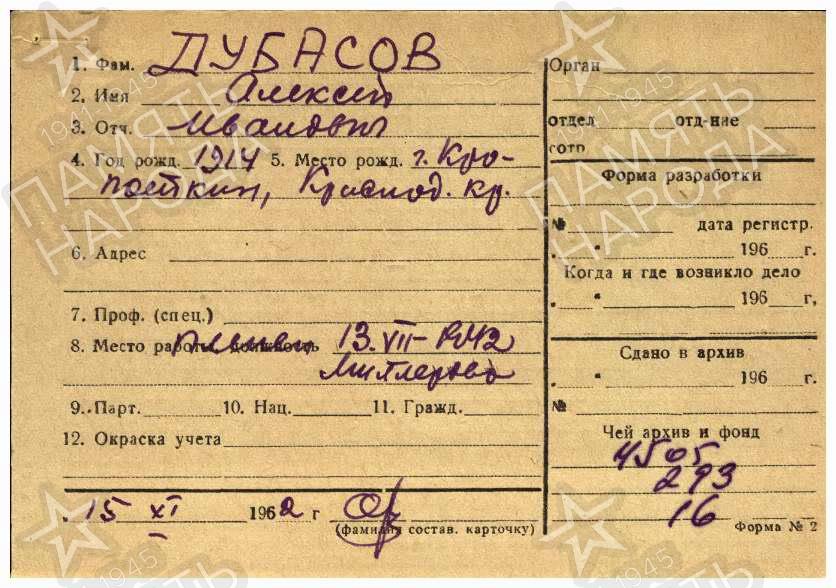 1. Фам. ДУБАСОВ
2. Имя Алексей
3. Отч. Иванович
4. Год рожд. 1914 5. Место рожд. г. Кро-
поткин, Краснод. кр.
6. Адрес
7. Проф. (спец.)
8. Место работы, должность 13.VII-1942
Миллерово
9. Парт. 10. Нац. 11. Гражд.
12. Окраска учета
15 XI 1962 г
(фамилия состав. карточку)
Орган
отдел отд-ние
сотр.
Форма разработки
№ дата регистр.
" 196 г.
Когда и где возникло дело
" 196 г.
Сдано в архив
" 196 г.
№
Чей архив и фонд
4505
293
16
Форма № 2
ПАМЯТЬ НАРОДА
1941-1945